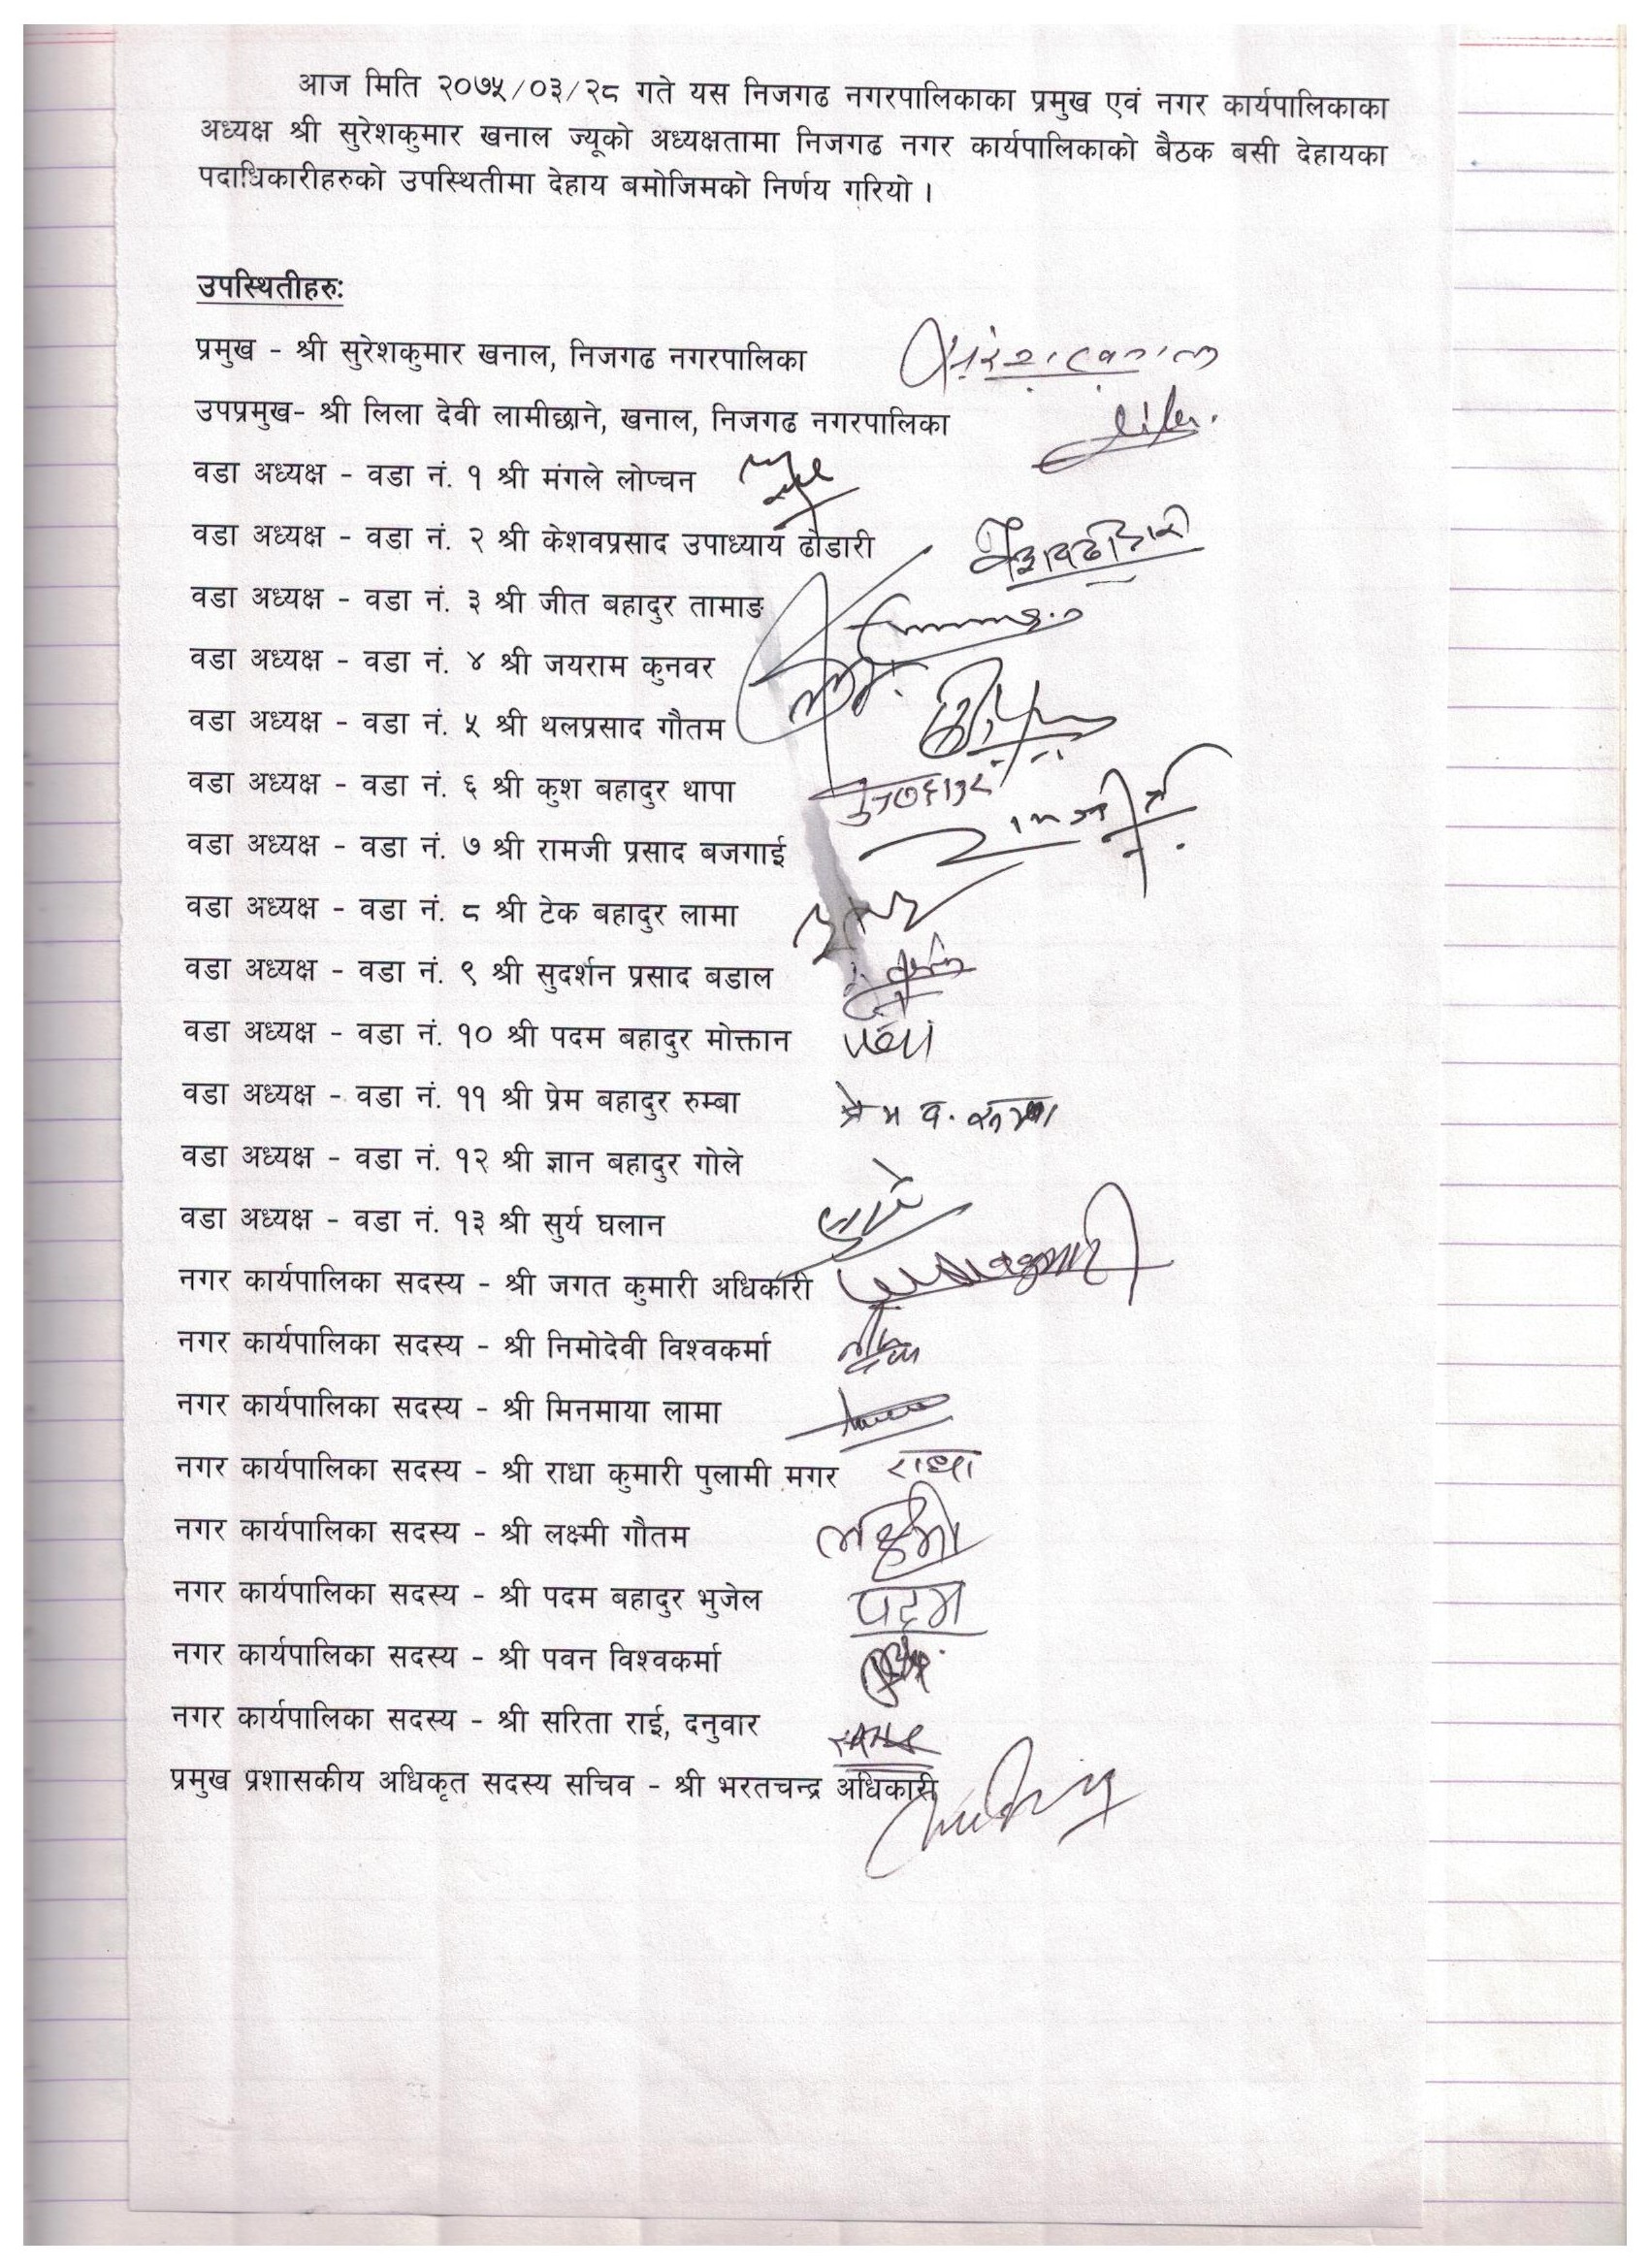 आज मिति २०७५/०३/२८ गते यस निजगढ नगरपालिकाका प्रमुख एवं नगर कार्यपालिकाका
अध्यक्ष श्री सुरेशकुमार खनाल ज्यूको अध्यक्षतामा निजगढ नगर कार्यपालिकाको बैठक बसी देहायका
पदाधिकारीहरुको उपस्थितीमा देहाय बमोजिमको निर्णय गरियो ।
उपस्थितीहरु:
प्रमुख - श्री सुरेशकुमार खनाल, निजगढ नगरपालिका
उपप्रमुख- श्री लिला देवी लामीछाने, खनाल, निजगढ नगरपालिका
वडा अध्यक्ष - वडा नं. १ श्री मंगले लोप्चन
वडा अध्यक्ष - वडा नं. २ श्री केशवप्रसाद उपाध्याय ढौडारी
वडा अध्यक्ष - वडा नं. ३ श्री जीत बहादुर तामाङ
वडा अध्यक्ष - वडा नं. ४ श्री जयराम कुनवर
वडा अध्यक्ष - वडा नं. ५ श्री थलप्रसाद गौतम
वडा अध्यक्ष - वडा नं. ६ श्री कुश बहादुर थापा
वडा अध्यक्ष - वडा नं. ७ श्री रामजी प्रसाद बजगाई
वडा अध्यक्ष - वडा नं. ८ श्री टेक बहादुर लामा
वडा अध्यक्ष - वडा नं. ९ श्री सुदर्शन प्रसाद बडाल
वडा अध्यक्ष - वडा नं. १० श्री पदम बहादुर मोक्तान
वडा अध्यक्ष - वडा नं. ११ श्री प्रेम बहादुर रुम्बा प्रेम ब. रुम्बा
वडा अध्यक्ष - वडा नं. १२ श्री ज्ञान बहादुर गोले
वडा अध्यक्ष - वडा नं. १३ श्री सुर्य घलान
नगर कार्यपालिका सदस्य - श्री जगत कुमारी अधिकारी
नगर कार्यपालिका सदस्य - श्री निमोदेवी विश्वकर्मा
नगर कार्यपालिका सदस्य - श्री मिनमाया लामा
नगर कार्यपालिका सदस्य - श्री राधा कुमारी पुलामी मगर राधा
नगर कार्यपालिका सदस्य - श्री लक्ष्मी गौतम लक्ष्मी
नगर कार्यपालिका सदस्य - श्री पदम बहादुर भुजेल पदम
नगर कार्यपालिका सदस्य - श्री पवन विश्वकर्मा
नगर कार्यपालिका सदस्य - श्री सरिता राई, दनुवार
प्रमुख प्रशासकीय अधिकृत सदस्य सचिव - श्री भरतचन्द्र अधिकारी